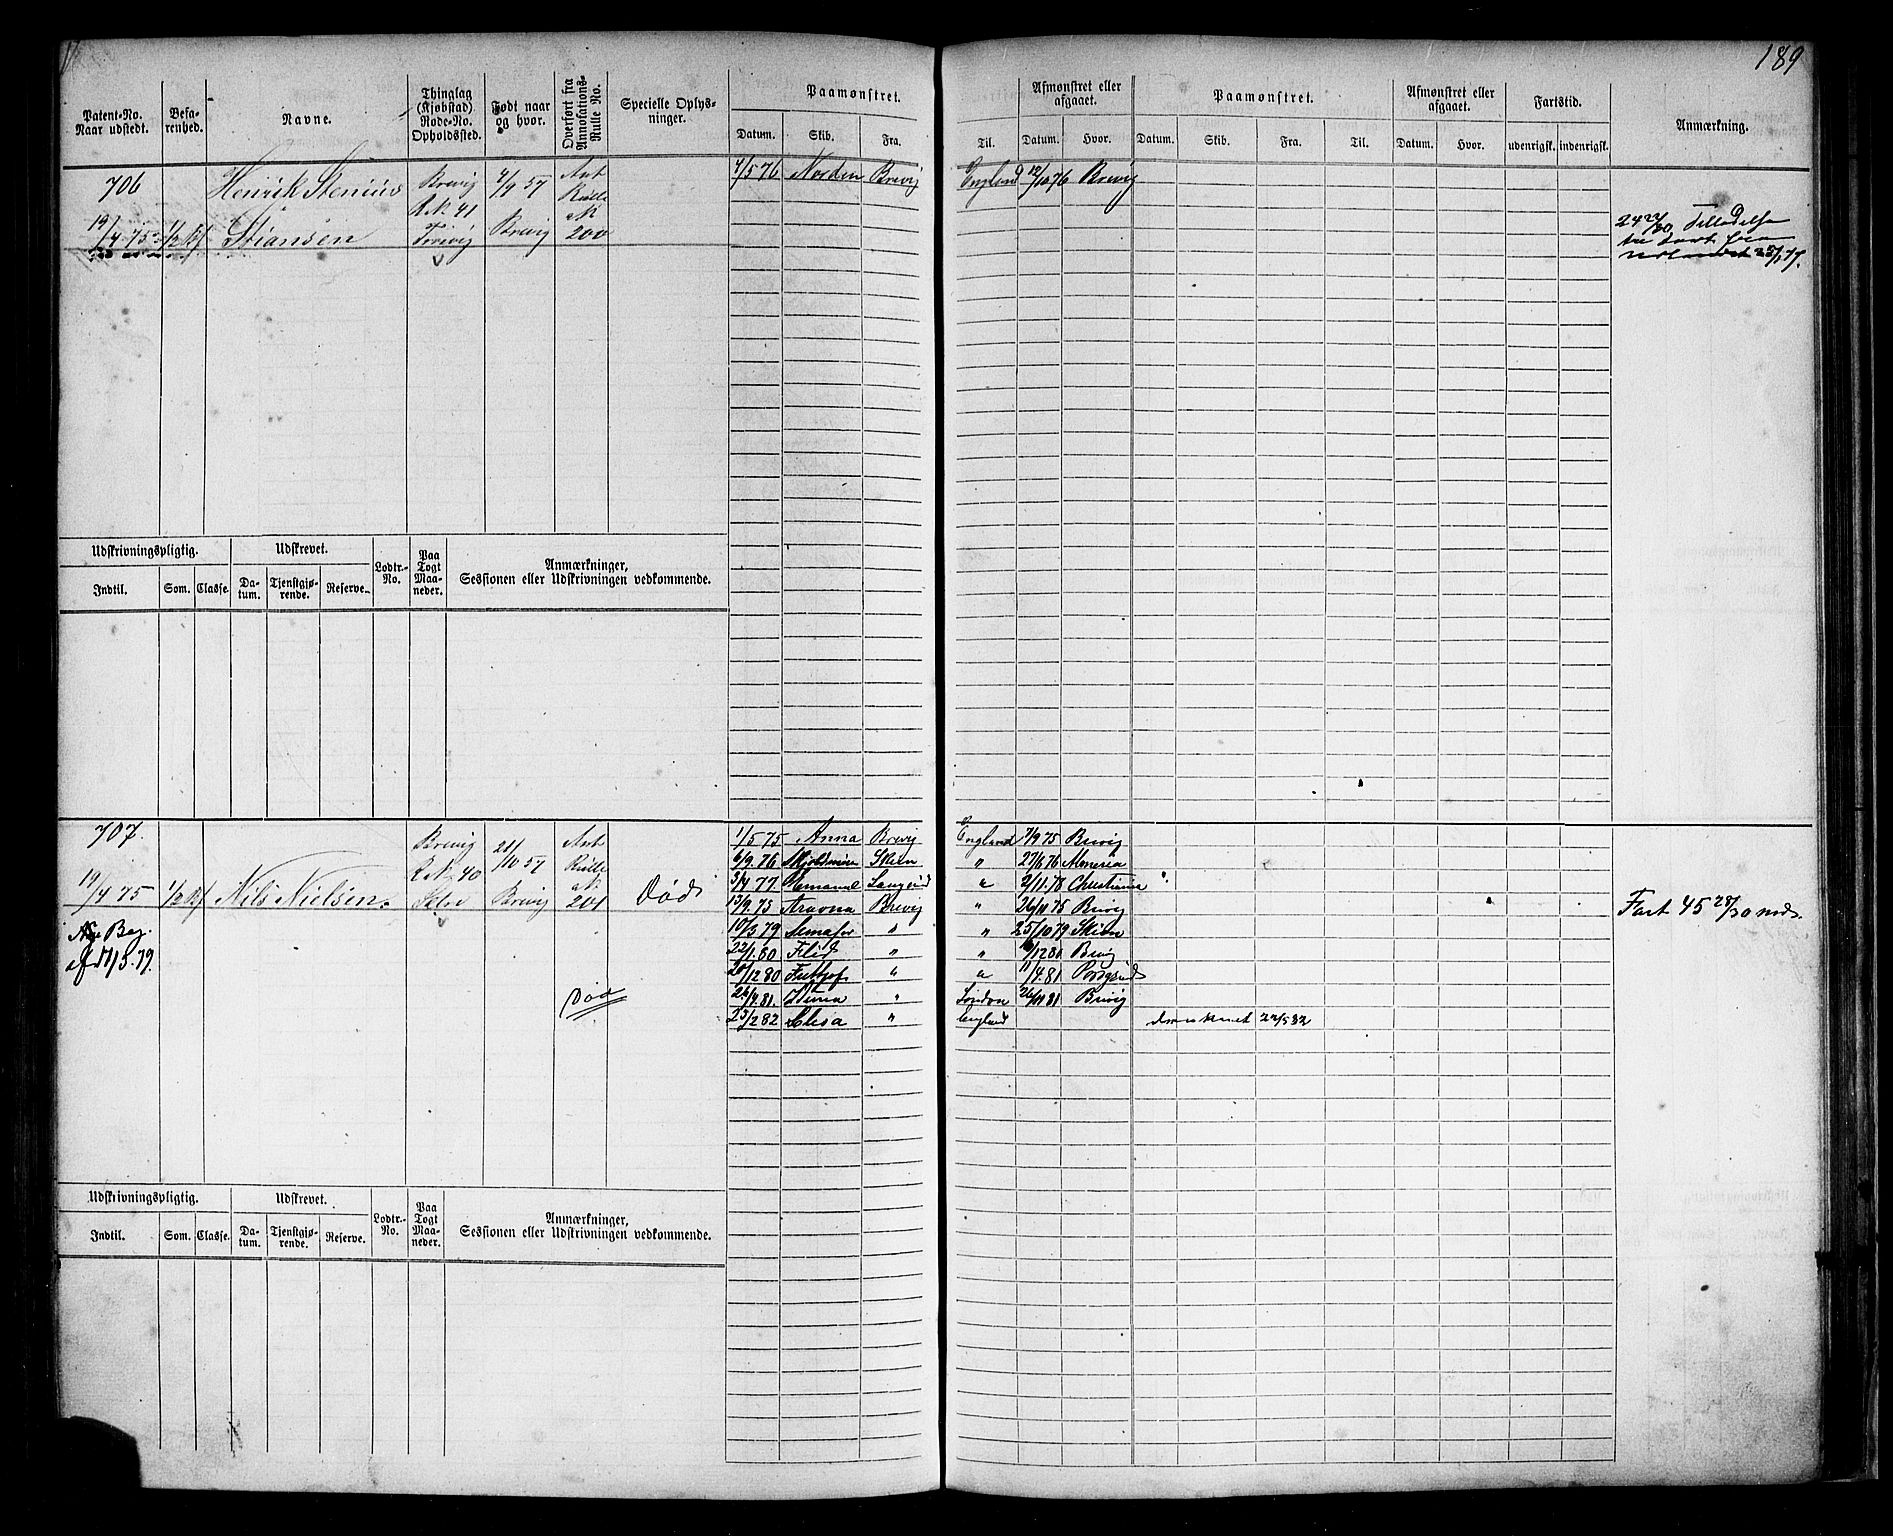 189
Patent-No. Naar udstedt.
Befarenhed.
Navne.
Thinglag (Kjøbstad) Rode-No. Opholdssted.
Født naar og hvor.
Overført fra Annotations-Rulle No.
Specielle Oplysninger.
Paamønstret.
Datum. Skib. Fra. Til.
Afmønstret eller afgaaet.
Datum. Hvor.
Paamønstret.
Datum. Skib. Fra. Til.
Afmønstret eller afgaaet.
Datum. Hvor.
Fartstid.
udenrigsk. indenrigsk.
Anmærkning.
706
19/4 75 1/2 Bf
Henrik Stenius
Stiansen
Brevig
R.N. 41
4/9 57
Brevig
Ant
Rulle
N
200
4/5 76 Norden Brevig England 12/10 76 Brevig
24 24/30 Tilladelse
Udskrivningspligtig. Udskrevet. Lodtr.-No. Paa Togt Maaneder. Anmærkninger, Sessionen eller Udskrivningen vedkommende.
Indtil. Som. Classe. Datum. Tjenstgjørende. Reserve.
707.
19/4 75 1/2 Bf Nils Nielsen.
Brevig
R.N. 40
21/10 57
Brevig
Ant
Rulle
N
201
Død
af 17/5.79.
Død
1/5 75 Anna Brevig England 7/9 75 Brevig
6/9.76 Skien " 27/6 76 Almeria
3/4 77 Langesund " 2/11.78 Christiania
13/9.75 Brevig " 26/11 75 Brevig
10/3 79 " " 25/10 79 Skien
22/1.80 " " Brevig
20/12 80 " " 11/4.81 Porsgrund
26/4.81. " London 26/11 81 Brevig
23/2 82 " England 22/5 82
Fart 45 28/30 mds.
Udskrivningspligtig. Udskrevet. Lodtr.-No. Paa Togt Maaneder. Anmærkninger, Sessionen eller Udskrivningen vedkommende.
Indtil. Som. Classe. Datum. Tjenstgjørende. Reserve.